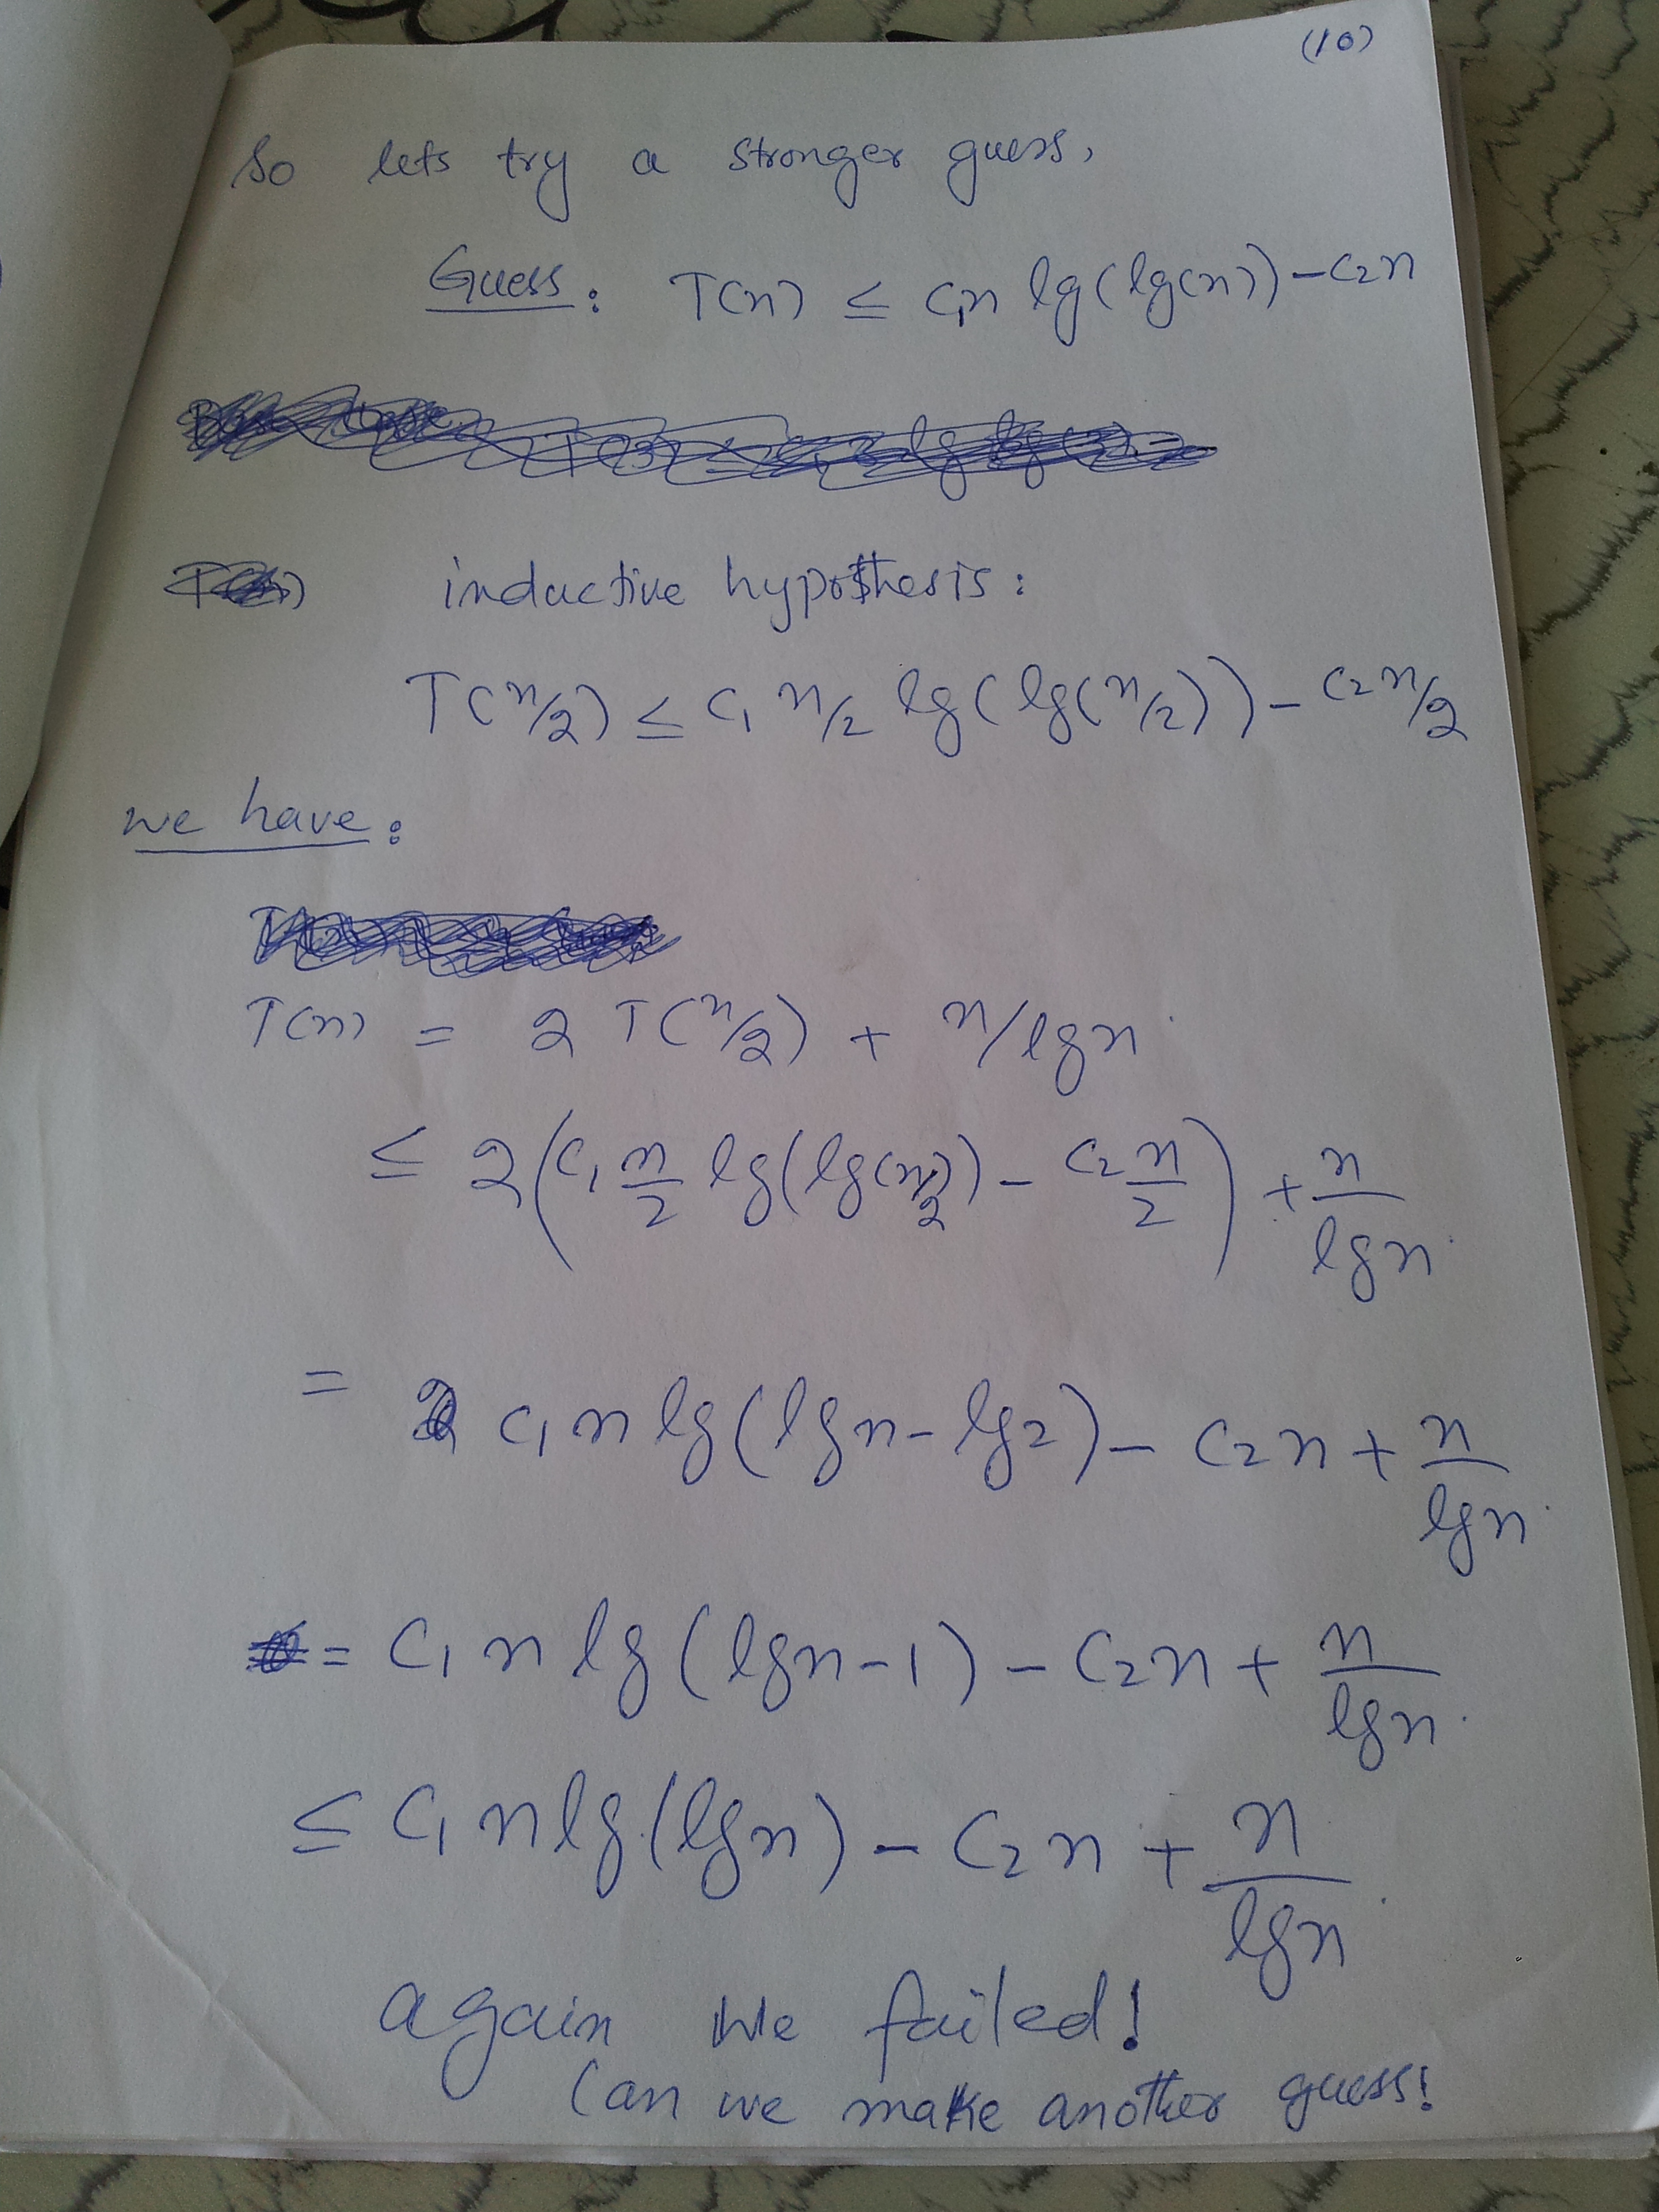 (10)
So lets try a stronger guess,
Guess: T(n) ≤ c₁n lg(lg(n)) - c₂n
inductive hypothesis:
T(n/2) ≤ c₁ n/2 lg(lg(n/2)) - c₂ n/2
we have:
T(n) = 2 T(n/2) + n/lgn.
≤ 2(c₁ n/2 lg(lg(n/2)) - c₂ n/2) + n/lgn.
= c₁ n lg(lgn - lg2) - c₂n + n/lgn.
= c₁ n lg(lgn-1) - c₂n + n/lgn.
≤ c₁ n lg(lgn) - c₂n + n/lgn.
again we failed!
Can we make another guess!